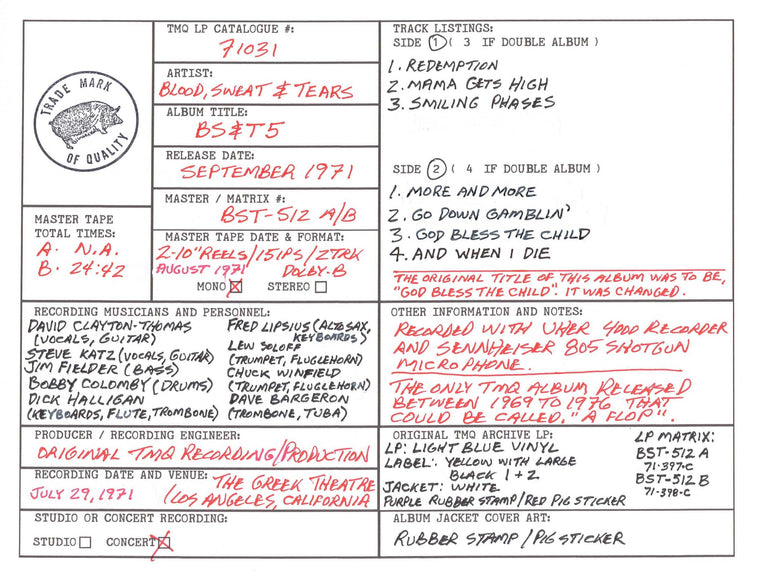 TRADE MARK
OF QUALITY
TMQ LP CATALOGUE #:
71031
ARTIST:
BLOOD, SWEAT & TEARS
ALBUM TITLE:
BS&T5
RELEASE DATE:
SEPTEMBER 1971
MASTER / MATRIX #:
BST-512 A/B
MASTER TAPE
TOTAL TIMES:
A. N.A.
B. 24:42
MASTER TAPE DATE & FORMAT:
2-10" REELS/15IPS/2TRK
AUGUST 1971 DOLBY-B
MONO STEREO
TRACK LISTINGS:
SIDE 1 ( 3 IF DOUBLE ALBUM )
1. REDEMPTION
2. MAMA GETS HIGH
3. SMILING PHASES
SIDE 2 ( 4 IF DOUBLE ALBUM )
1. MORE AND MORE
2. GO DOWN GAMBLIN'
3. GOD BLESS THE CHILD
4. AND WHEN I DIE
THE ORIGINAL TITLE OF THIS ALBUM WAS TO BE,
"GOD BLESS THE CHILD". IT WAS CHANGED.
RECORDING MUSICIANS AND PERSONNEL:
DAVID CLAYTON-THOMAS
(VOCALS, GUITAR)
STEVE KATZ (VOCALS, GUITAR)
JIM FIELDER (BASS)
BOBBY COLOMBY (DRUMS)
DICK HALLIGAN
(KEYBOARDS, FLUTE, TROMBONE)
FRED LIPSIUS (ALTO SAX,
KEYBOARDS)
LEW SOLOFF
(TRUMPET, FLUGLEHORN)
CHUCK WINFIELD
(TRUMPET, FLUGLEHORN)
DAVE BARGERON
(TROMBONE, TUBA)
OTHER INFORMATION AND NOTES:
RECORDED WITH UHER 4000 RECORDER
AND SENNHEISER 805 SHOTGUN
MICROPHONE.
THE ONLY TMQ ALBUM RELEASED
BETWEEN 1969 TO 1976 THAT
COULD BE CALLED, "A FLOP".
PRODUCER / RECORDING ENGINEER:
ORIGINAL TMQ RECORDING/PRODUCTION
RECORDING DATE AND VENUE: THE GREEK THEATRE
JULY 29, 1971 (LOS ANGELES, CALIFORNIA
STUDIO OR CONCERT RECORDING:
STUDIO CONCERT
ORIGINAL TMQ ARCHIVE LP:
LP: LIGHT BLUE VINYL
LABEL: YELLOW WITH LARGE
BLACK 1+2
JACKET: WHITE
PURPLE RUBBER STAMP/RED PIG STICKER
LP MATRIX:
BST-512 A
71-397-C
BST-512 B
71-398-C
ALBUM JACKET COVER ART:
RUBBER STAMP / PIG STICKER